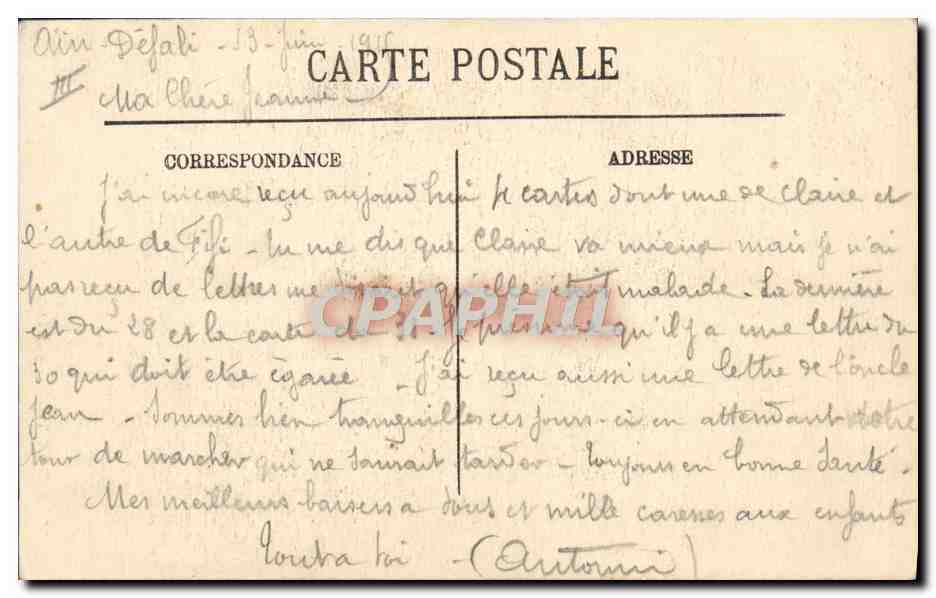 Aïn-Défali - 13 Juin 1915
CARTE POSTALE
III
Ma Chère Jeanne
CORRESPONDANCE
ADRESSE
J'ai encore reçu aujourd'hui 4 cartes dont une de Claire et
l'autre de Fifi - tu me dis que Claire va mieux mais je n'ai
pas reçu de lettres me disant qu'elle était malade. La dernière
est du 28 et la carte du 31. Je présume qu'il y a une lettre du
30 qui doit être égarée - J'ai reçu aussi une lettre de l'oncle
Jean - Sommes bien tranquilles ces jours-ci en attendant notre
tour de marcher qui ne saurait tarder - Toujours en bonne santé.
Mes meilleurs baisers à tous et mille caresses aux enfants
Tout à toi - (Antonin)
CPAPHIL